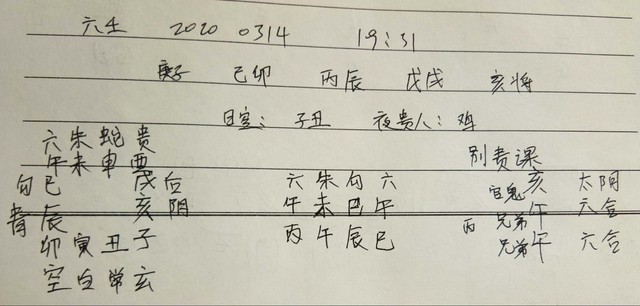 六壬 2020 0314 19:31
庚子 己卯 丙辰 戊戌 亥将
日空: 子丑 夜贵人: 鸡
六朱蛇贵 别责课
午未申酉
勾巳 戌后 六朱勾六 官鬼 亥 太阴
青辰 亥阴 午未巳午 兄弟 午 六合
卯寅丑子 丙午辰巳 丙 兄弟 午 六合
空白常玄